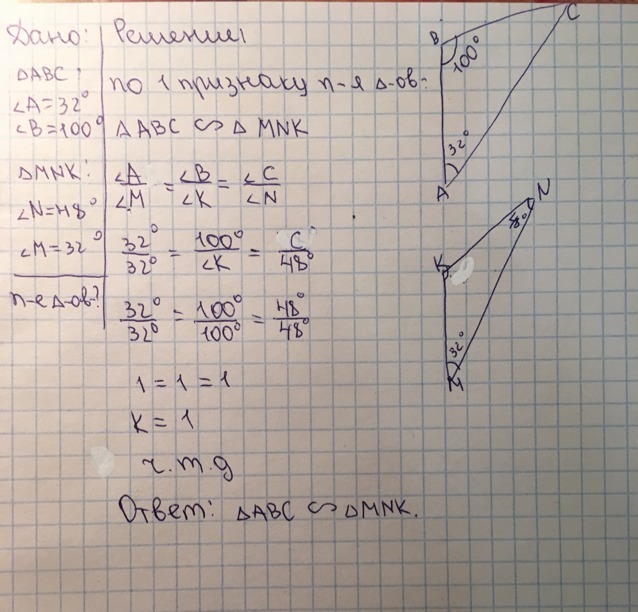 Дано:
△ABC:
∠A=32°
∠B=100°
△MNK:
∠N=48°
∠M=32°
п-е △-ов-?
Решение:
по 1 признаку п-я △-ов:
△ABC ∽ △MNK
∠A/∠M = ∠B/∠K = ∠C/∠N
32°/32° = 100°/∠K = C/48°
32°/32° = 100°/100° = 48°/48°
1 = 1 = 1
K = 1
ч.т.д
Ответ: △ABC ∽ △MNK.
B
C
100°
32°
A
N
48°
K
32°
M